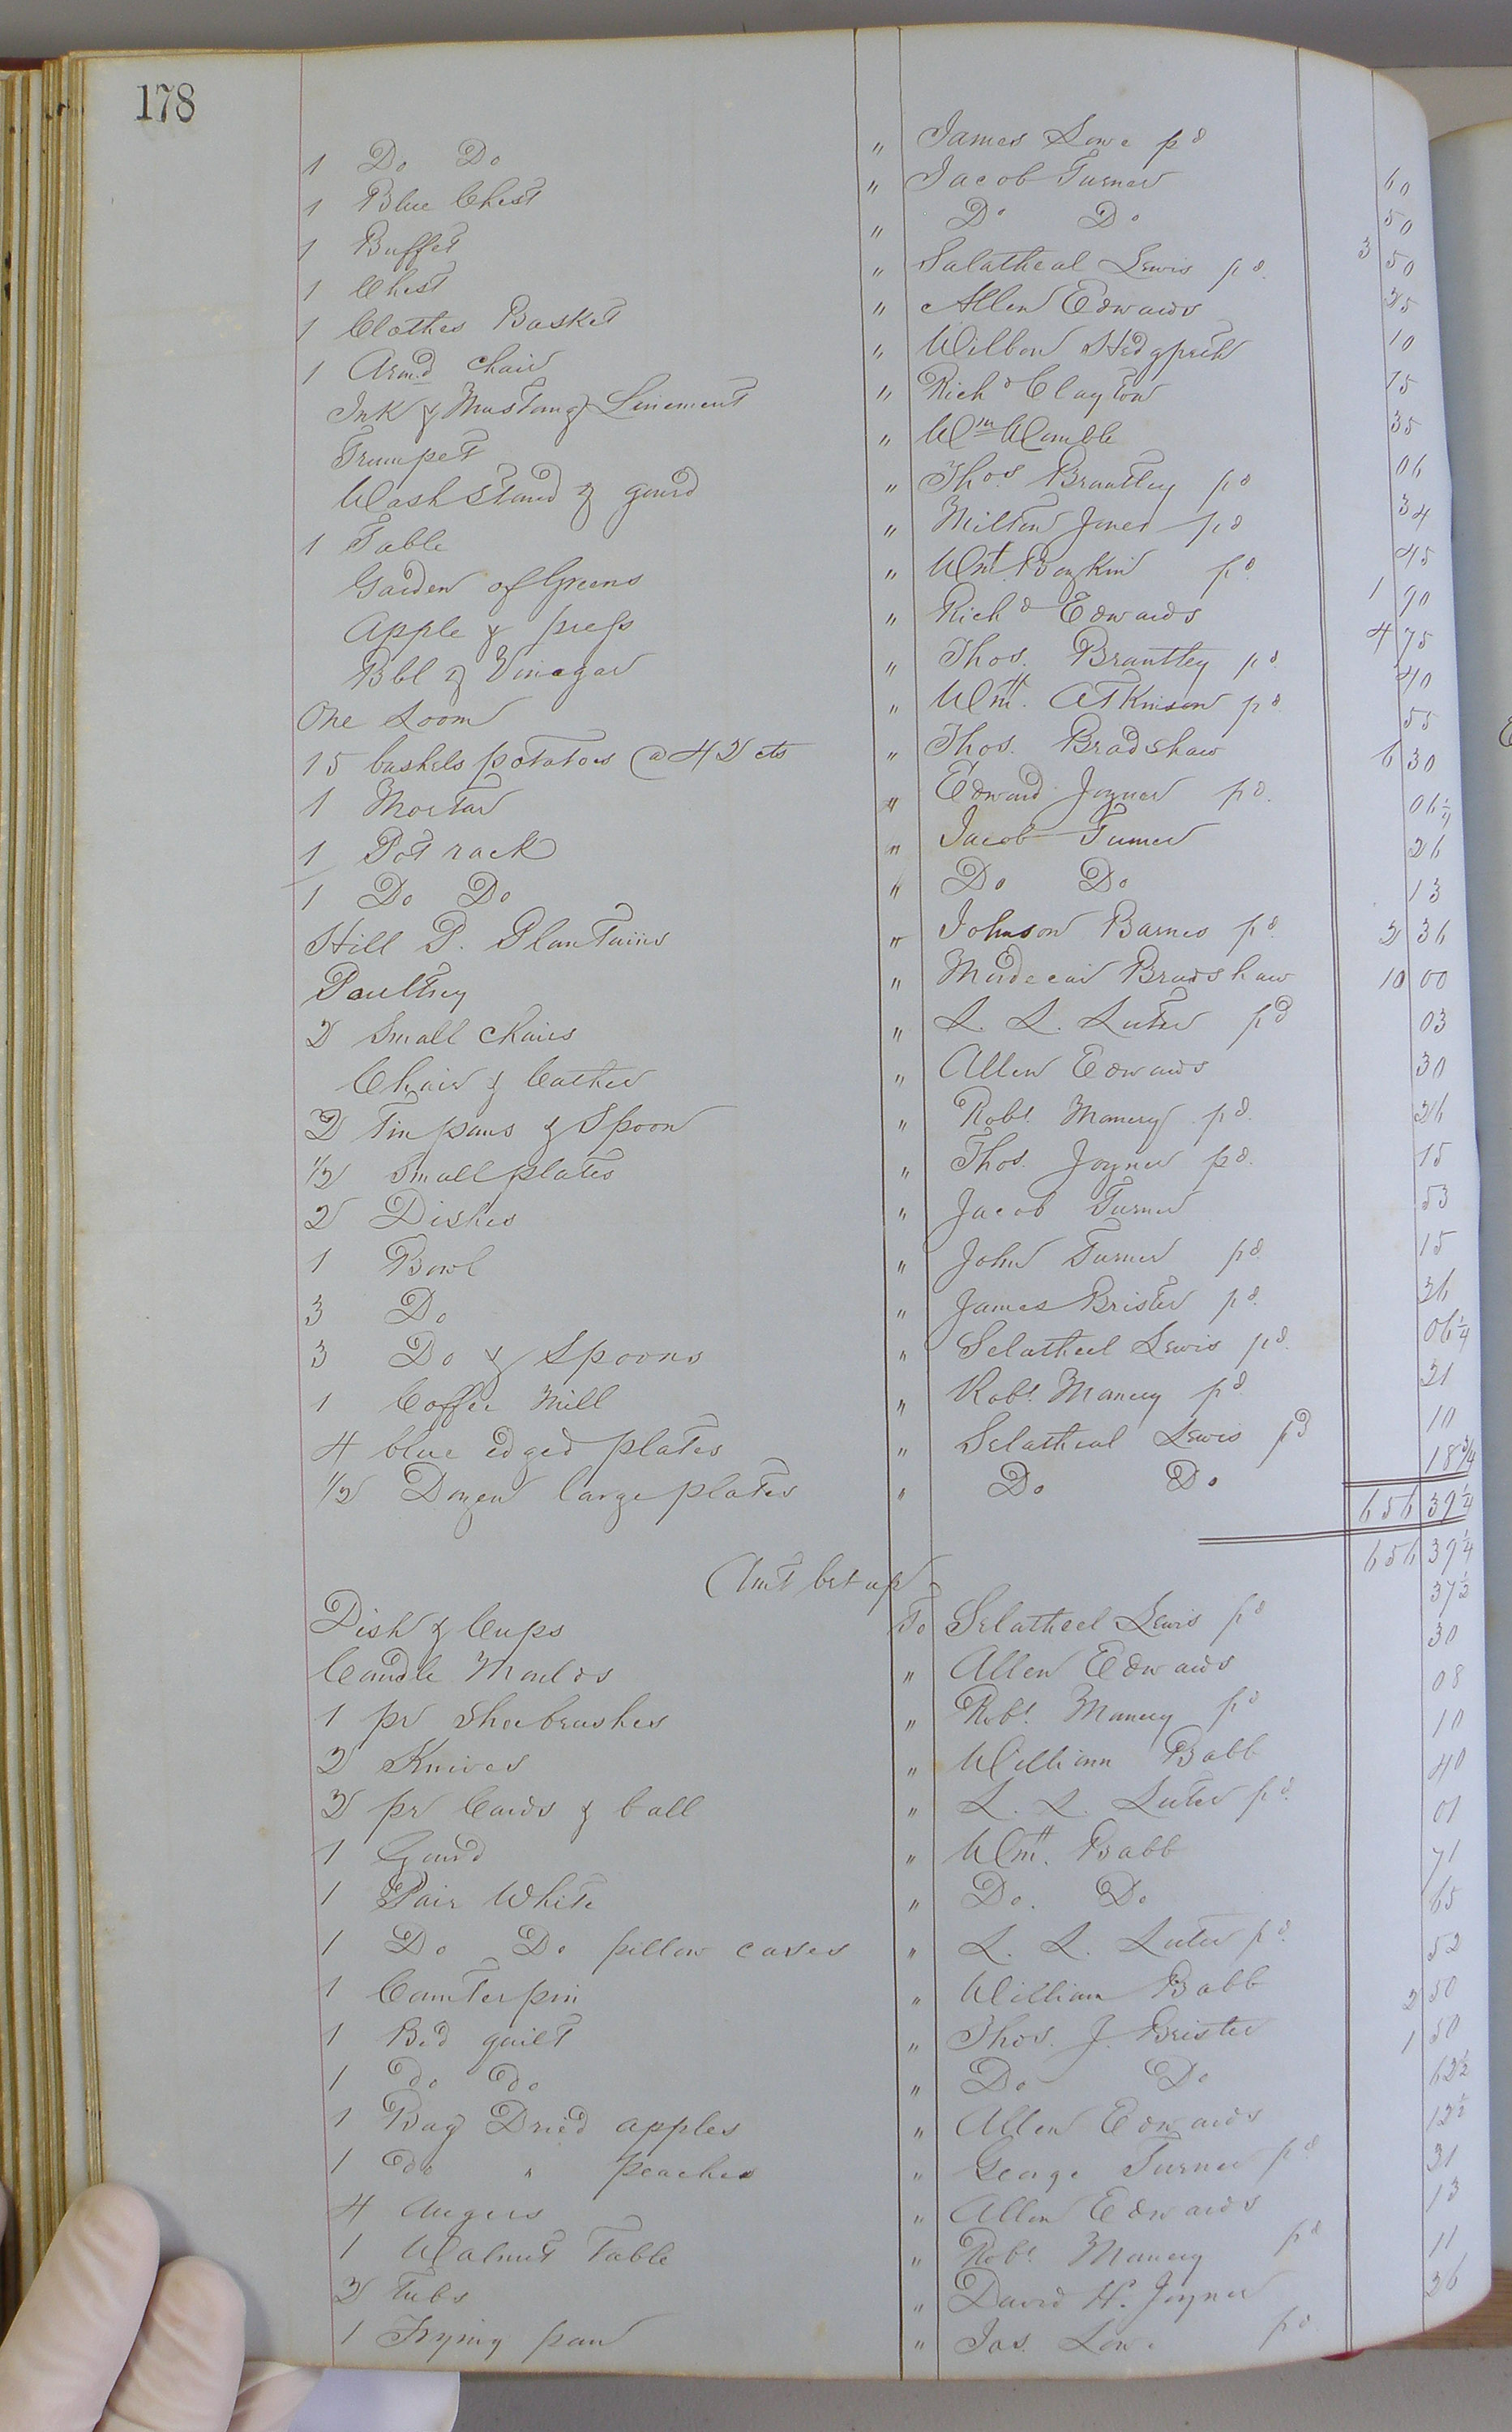 178
1 Do Do " James Lowe pd 60
1 Blue Chest " Jacob Turner 50
1 Buffet " Do Do 3 50
1 Chest " Salatheal Lewis pd. 25
1 Clothes Basket " Allen Edwards 10
1 Armd chair " Wilbon Hedgpeth 15
Ink & Mustang Linement " Richd Clayton 35
Trumpet " Wm Womble 06
Wash Stand & gourd " Thos. Brantley pd 34
1 Table " Milton Jones pd 45
Garden of Greens " Wm. Boykin pd 1 90
Apple & press " Richd Edwards 4 75
Bbl & Vinegar " Thos. Brantley pd. 40
One Loom " Wm. Atkinson pd. 55
15 baskets potatoes @ 42 cts " Thos. Bradshaw 6 30
1 Mortar " Edward Joyner pd. 06 1/4
1 Pot rack " Jacob Turner 26
1 Do Do " Do Do 13
Hill P. Plantains " Johnson Barnes pd. 2 36
Poultry " Mordecai Bradshaw 10 00
2 Small chairs " L. L. Luter pd 03
Chair & " Allen Edwards 30
2 Tin pans & Spoon " Robt. Manery pd. 26
1/2 Small plates " Thos. Joyner pd. 15
2 Dishes " Jacob Turner 53
1 Bowl " John Turner pd 15
3 Do " James Brister pd. 26
3 Do & Spoons " Selatheel Lewis pd. 06 1/4
1 Coffee Mill " Robt. Manery pd 21
4 blue edged plates " Selatheal Lewis pd 10
1/2 Dozen large plates " Do Do 18 3/4
656 39 1/4
Amt brt up 656 39 1/4
Dish & Cups To Selatheel Lewis pd 37 1/2
Candle Moulds " Allen Edwards 30
1 pr Shoebrushes " Robt. Manery pd 08
2 Knives " William Babb 10
2 pr Cards & ball " L. L. Luter pd. 40
1 Gourd " Wm. Babb 01
1 Pair White " Do. Do 71
1 Do Do pillow cases " L. L. Luter pd. 65
1 Counterpin " William Babb 52
1 Bed quilt " Thos. J. Brister 2 50
1 Do Do " Do Do 1 50
1 Bag Dried apples " Allen Edwards 62 1/2
1 Do " peaches " George Turner pd 12 1/2
4 Augers " Allen Edwards 31
1 Walnut Table " Robt. Manery pd 13
2 Tubs " David H. Joyner 11
1 Frying pan " Jas. Lowe pd. 26